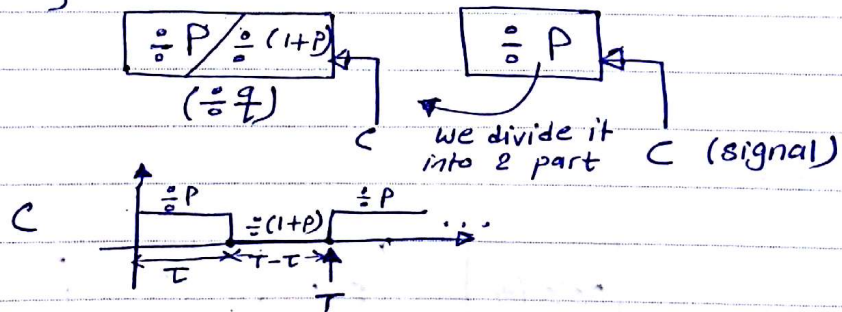 ÷ P / ÷ (1+P)
÷ P
(÷ q)
C
we divide it
into 2 part
C (signal)
C
÷ P
÷ (1+P)
÷ P
...
τ
T-τ
T